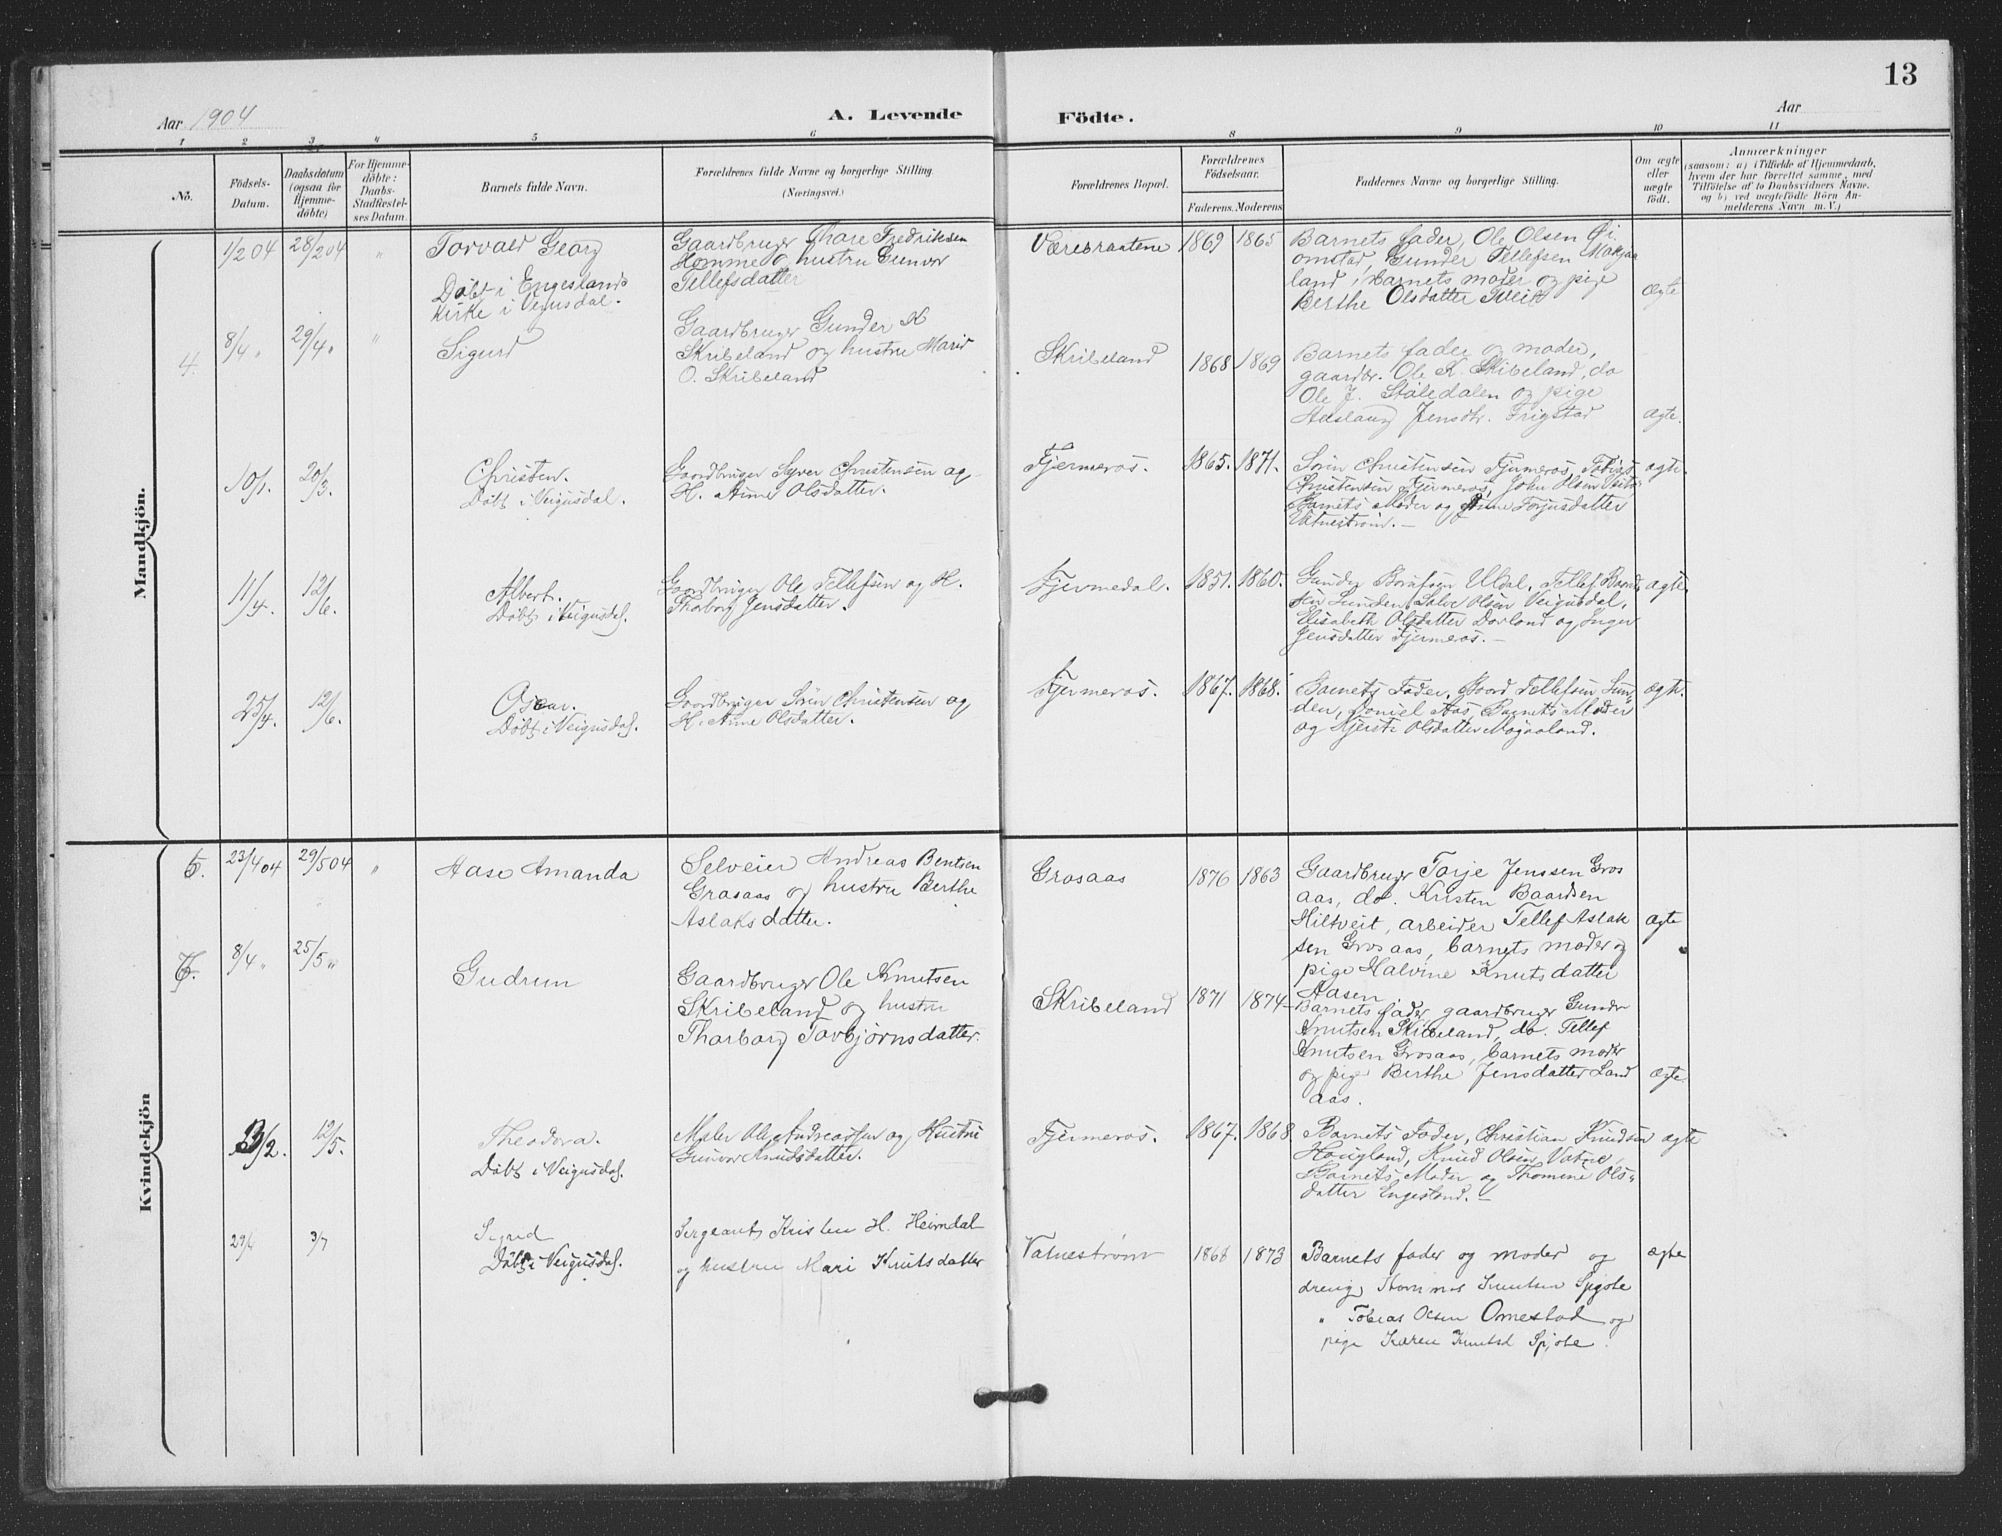 13
Aar 1904
A. Levende
Födte.
Aar
1 2 3 4 5 6 8 9 10 11
No.
Födsels-
Datum.
Daabsdatum
(ogsaa for
Hjemme-
döbte)
For Hjemme-
döbte:
Daabs-
Stadfæstel-
ses Datum.
Barnets fulde Navn.
Forældrenes fulde Navne og borgerlige Stilling.
(Næringsvei.)
Forældrenes Bopæl.
Forældrenes
Födselsaar.
Faderens. Moderens
Faddernes Navne og borgerlige Stilling.
Om ægte
eller
uægte
födt.
Anmærkninger
(saasom: a) i Tilfælde af Hjemmedaab,
hvem der har forrettet samme, med
Tilföielse af to Daabsvidners Navne.
og b) ved uægtefödte Börn An-
melderens Navn m. V.)
Mandkjön.
1/2 04 28/2 04 "
Torvald Georg
Döbt i Engeslands
Kirke i Vegusdal.
Gaardbruger Thore Fredriksen
Homme og hustru Gunvor
Tellefsdatter
Værebraatene
1869 1865
Barnets fader, Ole Olsen
omstad, Gunder Tellefsen
land, Barnets moder og pige
Berthe Olsdatter Tveit
Ægte
4.
8/4 " 29/4 " "
Sigurd
Gaardbruger Gunder K
Skribeland og hustru Marie
O. Skribeland
Skribeland
1868 1869
Barnets fader og moder,
gaardbr. Ole K. Skibeland, do
Ole J. Ståledalen og pige
Aaslaug Jensdtr. Frigstad
Ægte.
10/1. 20/3.
Christen.
Döbt i Veigusdal.
Gaardbruger Syver Christensen og
H. Anne Olsdatter.
Fjermeros.
1865. 1871.
Sörin Christensen Fjermeros, Tobias
Christensen Fjermeros, John Olsen
Barnets Moder og Anne Torjusdatter
Vatnestrøm. —
ægte.
11/4. 12/6.
Albert.
Döbt i Veigusdal.
Gaardbruger Ole Tellefsen og H.
Thorborg Jensdatter.
Fjermedal.
1851. 1860.
Gunder Uldal, Tellef Baard
sen Lunden, Salve Olsen Veigusdal,
Elisabeth Olsdatter Dovland og Inger
Jensdatter Fjermeros. —
ægte.
25/4. 12/6.
Oscar.
Döbt i Veigusdal.
Gaardbruger Sörin Christensen og
H. Anne Olsdatter.
Fjermeros.
1867. 1868.
Barnets Fader, Baard Tellefsen Lun-
den, Daniel Aas, Barnets Moder
og Kjersti Olsdatter Mogaaland.
ægte.
Kvindekjön
6.
23/4 04 29/5 04 "
Aase Amanda
Selveier Andreas Bentsen
Grasaas og hustru Berthe
Aslaksdatter.
Grosaas
1876 1863
Gaardbruger Torje Jenssen Gros
aas, do. Kristen Baardsen
Hiltveit, arbeider Tellef Aslak
sen Grosaas, barnets moder og
pige Halvine Knutsdatter
Aasen
Ægte
7.
8/4 " 25/5 "
Gudrun
Gaardbruger Ole Knutsen
Skribeland og hustru
Thorborg Tovbjørnsdatter.
Skribeland
1871 1874
Barnets fader, gaardbruger Gunder
Knutsen Skibeland, do. Tellef
Knutsen Grosaas, barnets moder
og pige Berthe Jensdatter Land
aas.
Ægte.
13/2. 12/5.
Theodora.
Döbt i Veigusdal.
Maler Ole Andreassen og Hustru
Gunvor Knudsdatter.
Fjermeros.
1867. 1868
Barnets Fader, Christian Knudsen
Hougland, Knud Olsen Vatne,
Barnets Moder og Thomine Ols-
datter Engesland. —
ægte
29/4 3/7
Sigrid
Döbt i Veigusdal.
Sergeant Kristen H. Heimdal
og hustru Mari Knutsdatter
Vatnestrøm
1868 1873
Barnets fader og moder og
dreng Knutsen Spjote
" Tobias Olsen Omestad og
pige Karen Knutsd Spjote.
ægte